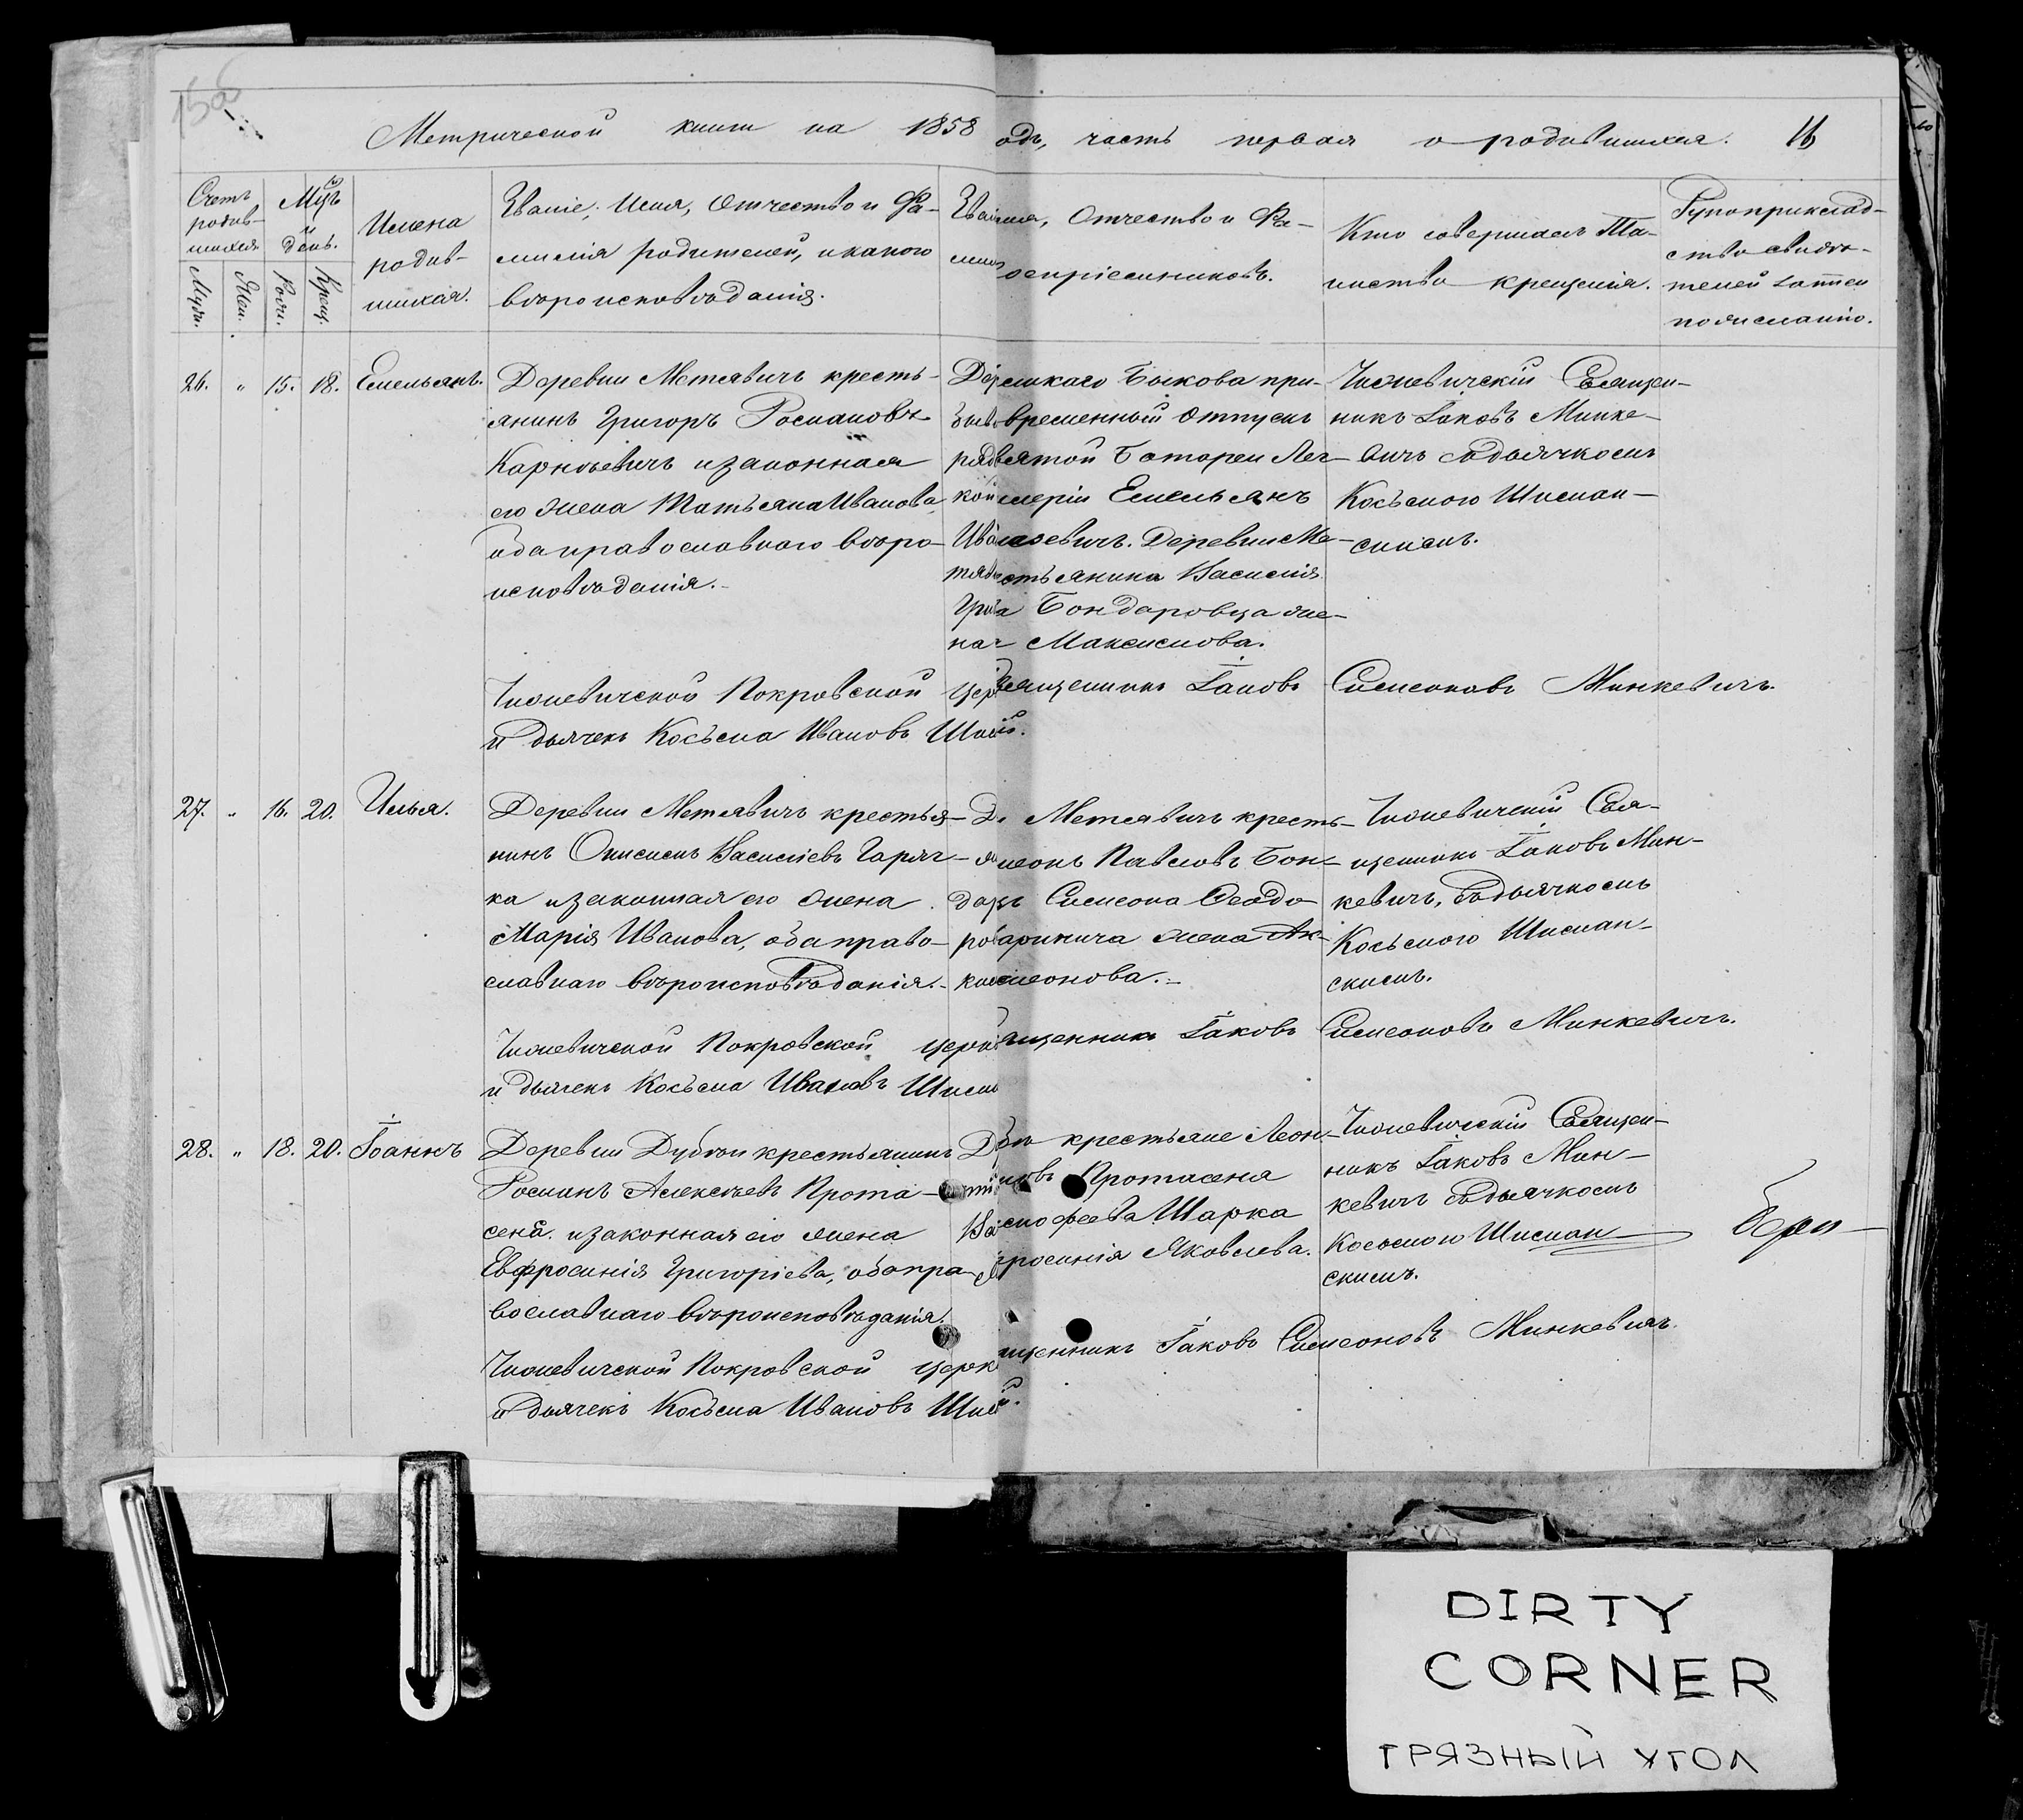 Метрической книги на 1858
одъ, часть первая о родившихся. 16
Счетъ родив-шихся
Муж.
Жен.
Мцъ и день.
Рожд.
Крещ.
Имена
родив-
шихся.
Званіе, Имя, Отчество и Фа-
милія родителей, и какого
вѣроисповѣданія.
мя, Отчество и Фа-
оспріемниковъ.
Кто совершалъ Та-
инство крещенія.
Рукоприклад-
ство свидѣ-
телей записи
по желанію.
26. " 15. 18. Емельянъ.
Деревни Метявичъ кресть-
янинъ Григоръ Романовъ
Карнѣевичъ и законная
его жена Татьяна Иванова
оба православнаго вѣро-
исповѣданія.-
Быкова при-
временный отпускъ
вятой Батареи Лег-
Емельянъ
Деревни Ме-
стьянина Василія
Бондаровца же-
на Максимова.
Священ-
никъ Іаковъ Минке-
вичъ съ дьячкомъ
Косьмою Шиман-
скимъ.
Покровской
ященникъ Іаковъ Симеоновъ Минкевичъ.
и дьячекъ Косьма Ивановъ
27. " 16. 20. Илья.
Деревни Метявичъ крестья-
нинъ Онисимъ Василіевъ Гаряч-
ка и законная его жена
Марія Иванова, оба право-
славнаго вѣроисповѣданія.-
Метявичъ кресть-
меонъ Павловъ Бон-
даръ Симеона Ѳеодо-
жена Ак-
меонова.-
Свя-
щенникъ Іаковъ Мин-
кевичъ, съ дьячкомъ
Косьмою Шиман-
скимъ.
Покровской церк
ященникъ Іаковъ Симеоновъ Минкевичъ.
и дьячекъ Косьма Ивановъ Шим
28. " 18. 20. Іоаннъ
Деревни Дубъи крестьянинъ
Романъ Алексѣевъ Прота-
сеня и законная его жена
Евфросинія Григоріева, оба пра-
вославнаго вѣроисповѣданія.
крестьяне Леон-
новъ Протасеня
Шарка
росинія Яковлева.
Священ-
никъ Іаковъ Мин-
кевичъ съ дьячкомъ
Косьмою Шиман-
скимъ.
Покровской церк
щенникъ Іаковъ Симеоновъ Минкевичъ.
и дьячекъ Косьма Ивановъ
DIRTY
CORNER
ГРЯЗНЫЙ УГОЛ